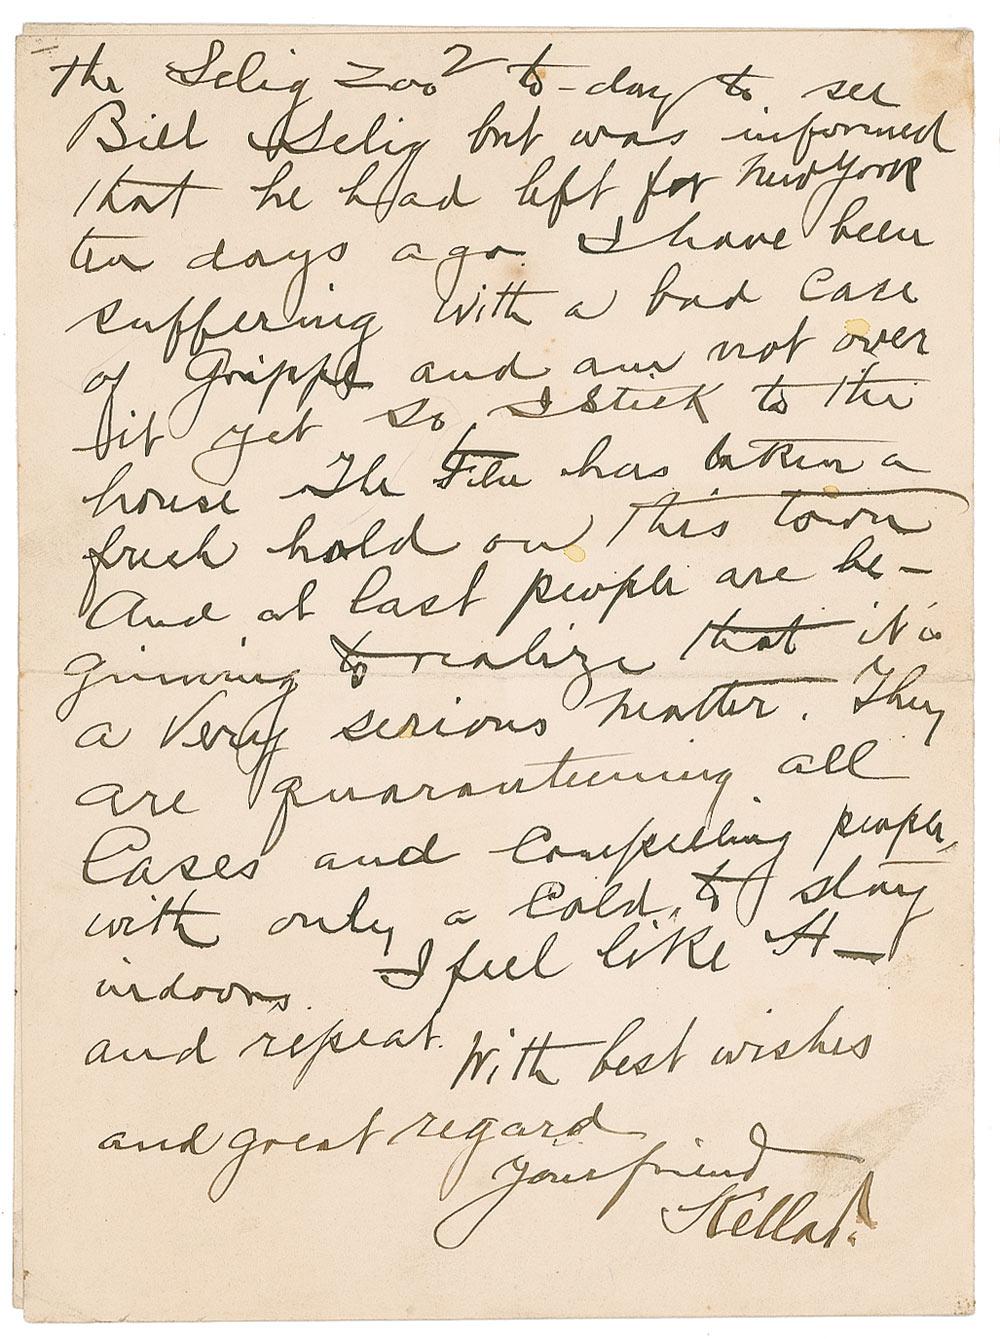 2
the Selig Zoo to-day to see
Bill Selig but was informed
that he had left for New York
ten days ago. I have been
suffering with a bad case
of Grippe and am not over
it yet so I stick to the
house The Flu has taken a
fresh hold on this town
And at last people are be-
ginning to realize that it is
a Very serious matter. They
are quaranteening all
Cases and Compelling people,
with only a Cold, to stay
indoors. I feel like H—
and repeat. With best wishes
and great regard
Your friend
Kellar.